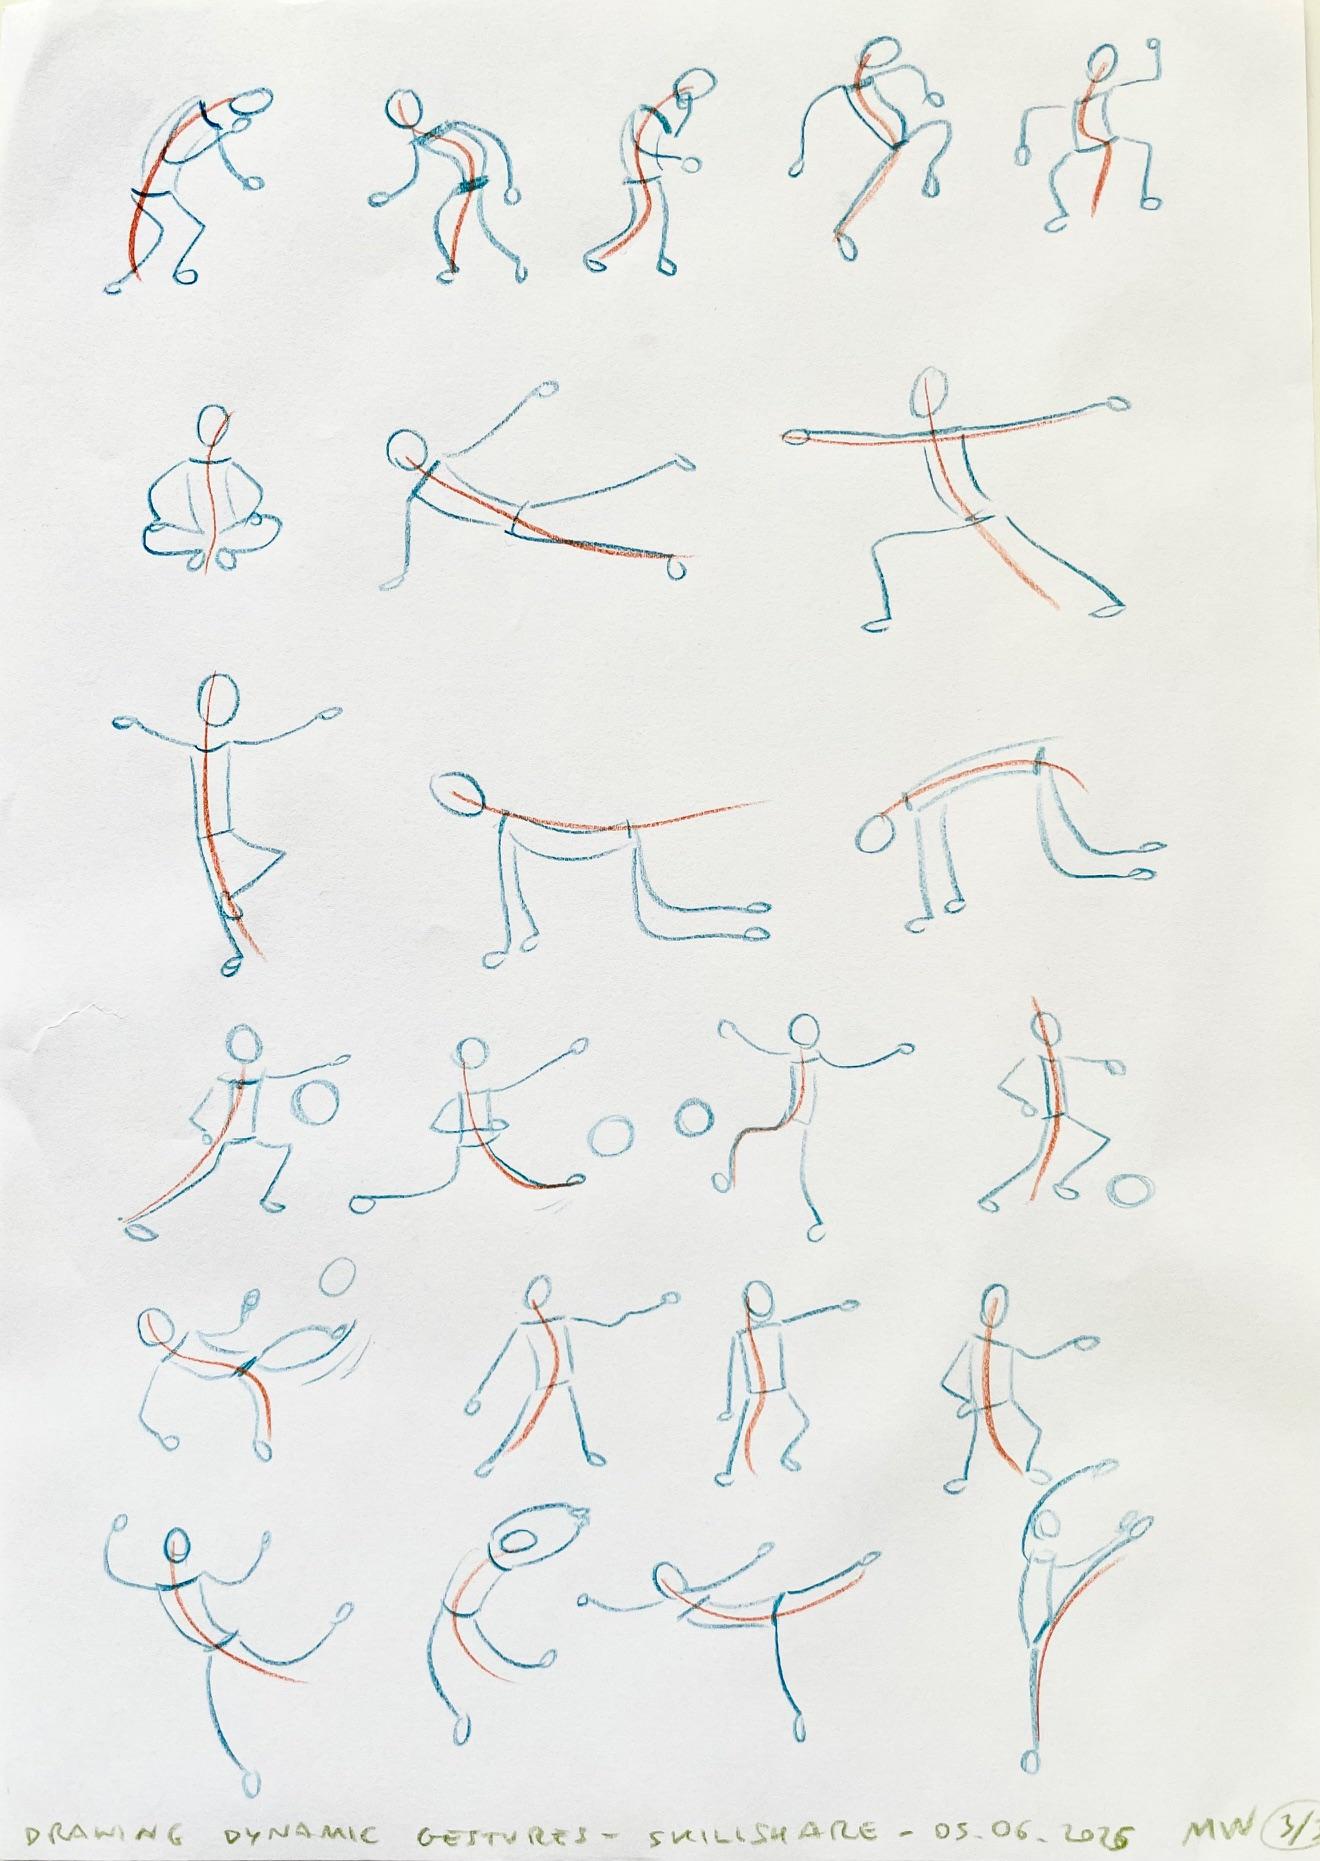 DRAWING DYNAMIC GESTURES - SKILLSHARE - 05.06.2025 MW 3/3